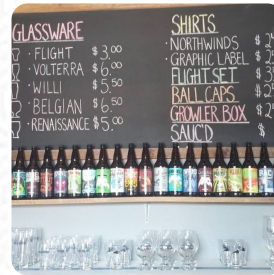 GLASSWARE
· FLIGHT $3.00
· VOLTERRA $6.00
· WILLI $5.50
· BELGIAN $6.50
· RENAISSANCE $5.00
SHIRTS
· NORTHWINDS $
· GRAPHIC LABEL $
FLIGHT SET $
BALL CAPS $
GROWLER BOX $
SAUC'D $